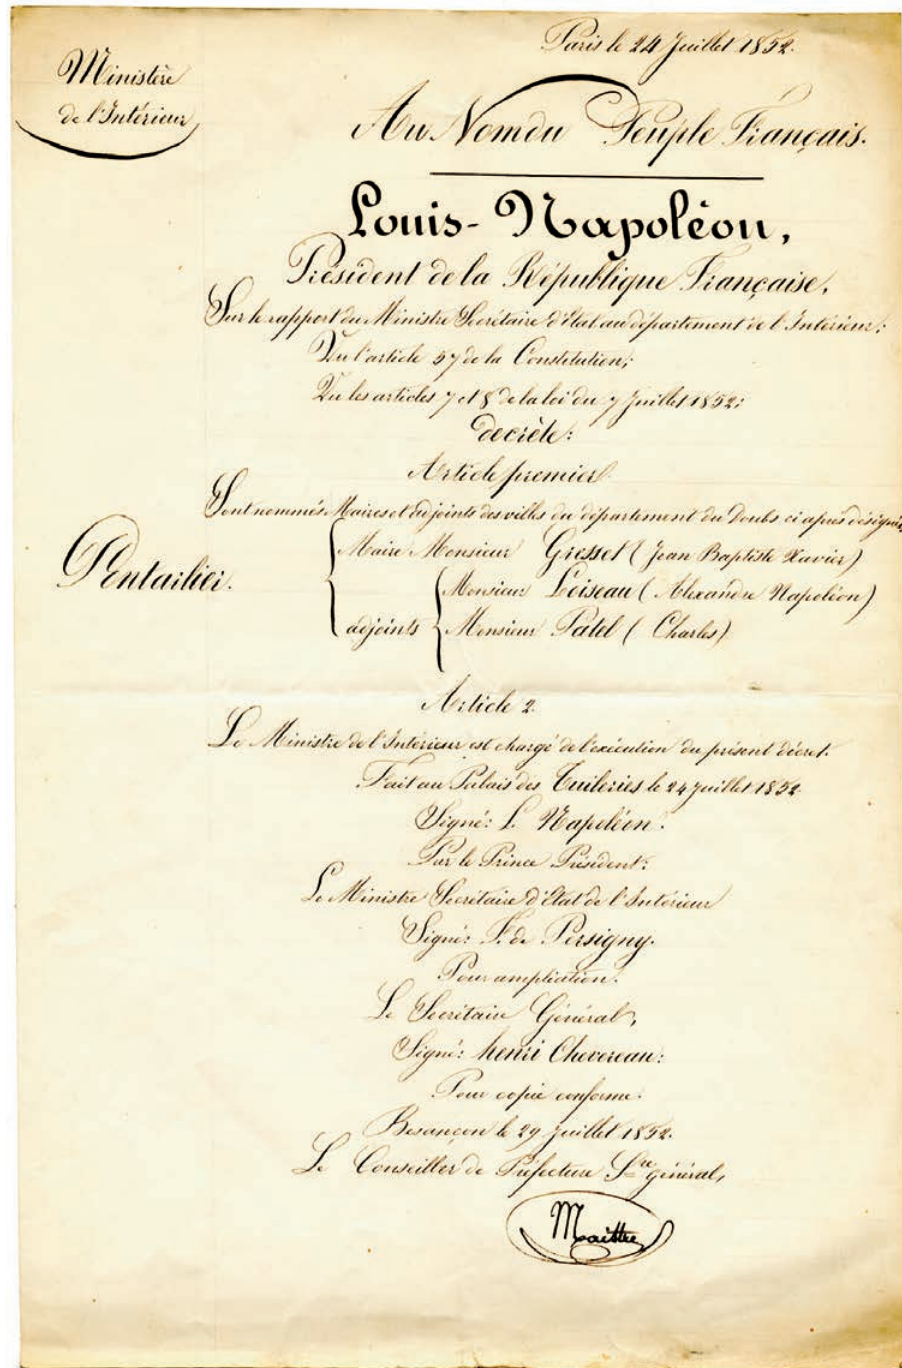 Paris le 24 Juillet 1852.
Ministère
de l'Intérieur
Au Nom du Peuple Français.
Louis-Napoléon,
Président de la République Française,
Sur le rapport du Ministre Secrétaire d'État au département de l'Intérieur;
Vu l'article 57 de la Constitution;
Vu les articles 7 et 8 de la loi du 7 Juillet 1852;
decrète:
Article premier.
Sont nommés Maires et adjoints des villes du département du Doubs ci après désignées
Pontarlier.
Maire Monsieur Gresset (Jean Baptiste Xavier)
Monsieur Loiseau (Alexandre Napoléon)
adjoints Monsieur Patel (Charles)
Article 2.
Le Ministre de l'Intérieur est chargé de l'exécution du présent décret.
Fait au Palais des Tuileries le 24 juillet 1852.
Signé: L. Napoléon.
Par le Prince Président:
Le Ministre Secrétaire d'État de l'Intérieur
Signé: F. de Persigny.
Pour ampliation.
Le Secrétaire Général,
Signé: henri Chevereau:
Pour copie conforme:
Besançon le 29 juillet 1852.
Le Conseiller de Préfecture Sre général,
Maître